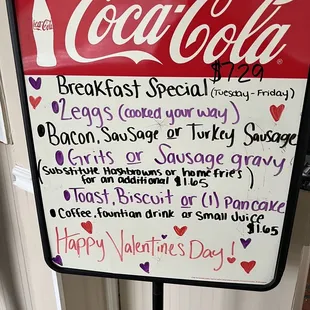 Coca-Cola
Coca-Cola
$7.29
Breakfast Special (Tuesday - Friday)
• 2 eggs (cooked your way)
• Bacon, Sausage or Turkey Sausage
• Grits or Sausage gravy
(Substitute Hashbrowns or home fries
for an additional $1.65)
• Toast, Biscuit or (1) Pancake
• Coffee, fountian drink or Small Juice
$1.65
Happy Valentines Day!